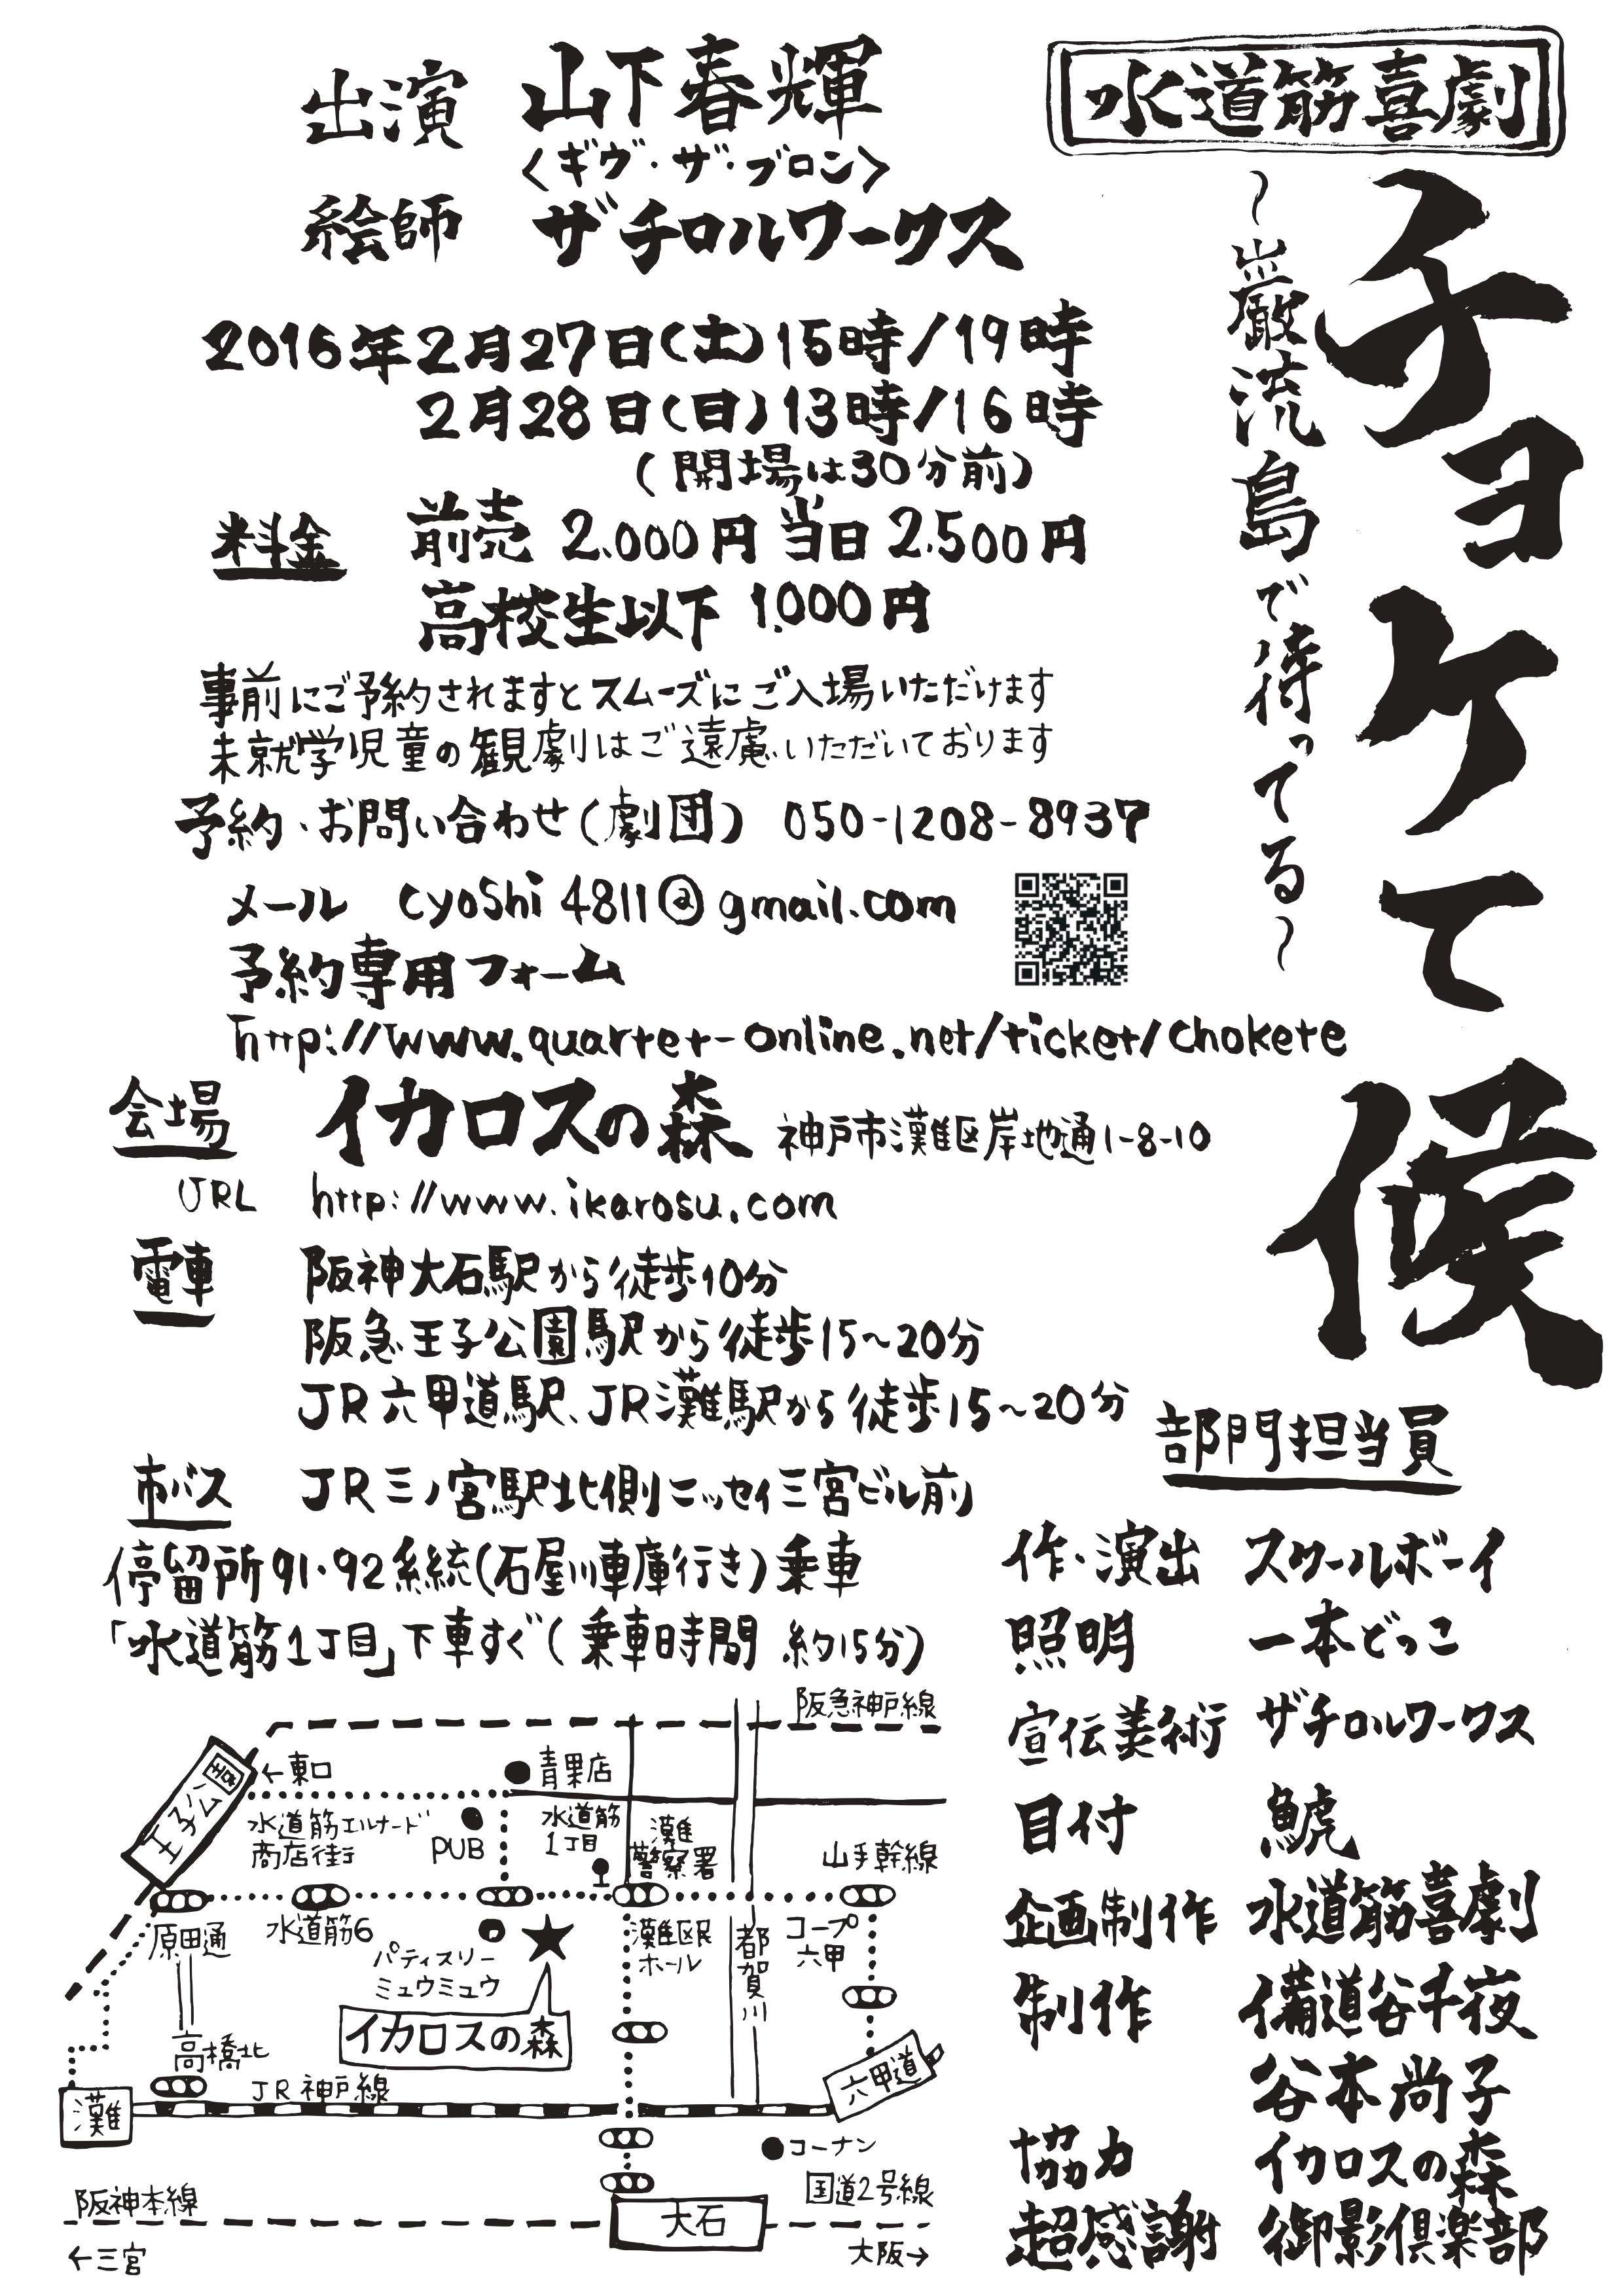 水道筋喜劇
チョケて候
～巌流島で待ってる～
出演 山下春輝
〈ギヴ・ザ・ブロン〉
絵師 ザチロルワークス
2016年2月27日(土)15時/19時
2月28日(日)13時/16時
(開場は30分前)
料金 前売 2.000円 当日 2.500円
高校生以下 1.000円
事前にご予約されますとスムーズにご入場いただけます
未就学児童の観劇はご遠慮いただいております
予約・お問い合わせ(劇団) 050-1208-8937
メール cyoshi4811@gmail.com
予約専用フォーム
http://www.quartet-online.net/ticket/chokete
会場 イカロスの森 神戸市灘区岸地通1-8-10
URL http://www.ikarosu.com
電車 阪神大石駅から徒歩10分
阪急王子公園駅から徒歩15～20分
JR六甲道駅、JR灘駅から徒歩15～20分
市バス JR三ノ宮駅北側ニッセイ三宮ビル前
停留所91・92系統(石屋川車庫行き)乗車
「水道筋1丁目」下車すぐ(乗車時間 約15分)
部門担当員
作・演出 スクールボーイ
照明 一本どっこ
宣伝美術 ザチロルワークス
目付 鯱
企画制作 水道筋喜劇
制作 備道谷千夜
谷本尚子
協力 イカロスの森
超感謝 御影倶楽部
阪急神戸線
王子公園
←東口
青果店
水道筋エルナード
商店街
PUB
水道筋
1丁目
灘
警察署
山手幹線
原田通
水道筋6
パティスリー
ミュウミュウ
灘区民
ホール
都賀川
コープ
六甲
イカロスの森
高橋北
JR神戸線
灘
六甲道
コーナン
国道2号線
阪神本線
大石
←三宮
大阪→